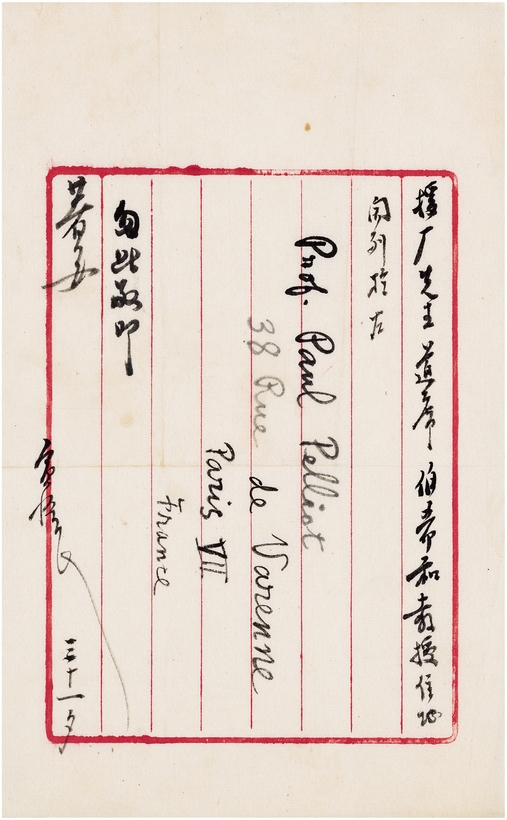 援厂先生道席伯希和教授住址
開列於左
Prof. Paul Pelliot
38 Rue de Varenne
Paris VII
France
匆此敬叩
著安
寅恪
三十一夕